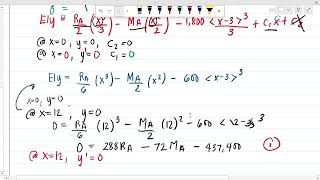 EIy = RA/2 (x³/3) - MA (x²/2) - 1,800 <x-3>³/3 + C₁x +
@ x=0, y=0, C₂=0
@ x=0, y'=0 C₁=0
EIy = RA/6 (x³) - MA/2 (x²) - 600 <x-3>³
x=0, y=0
@ x=12, y=0
0 = RA/6 (12)³ - MA/2 (12)² - 600 <12-3>³
0 = 288RA - 72MA - 437,400 i
@ x=12, y'=0